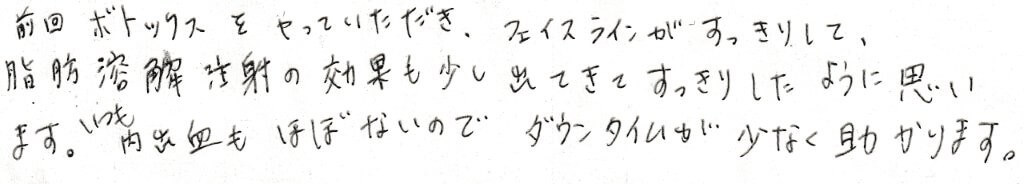 前回ボトックスをやっていただき、フェイスラインがすっきりして、
脂肪溶解注射の効果も少し出てきてすっきりしたように思い
ます。いつも内出血もほぼないのでダウンタイムが少なく助かります。